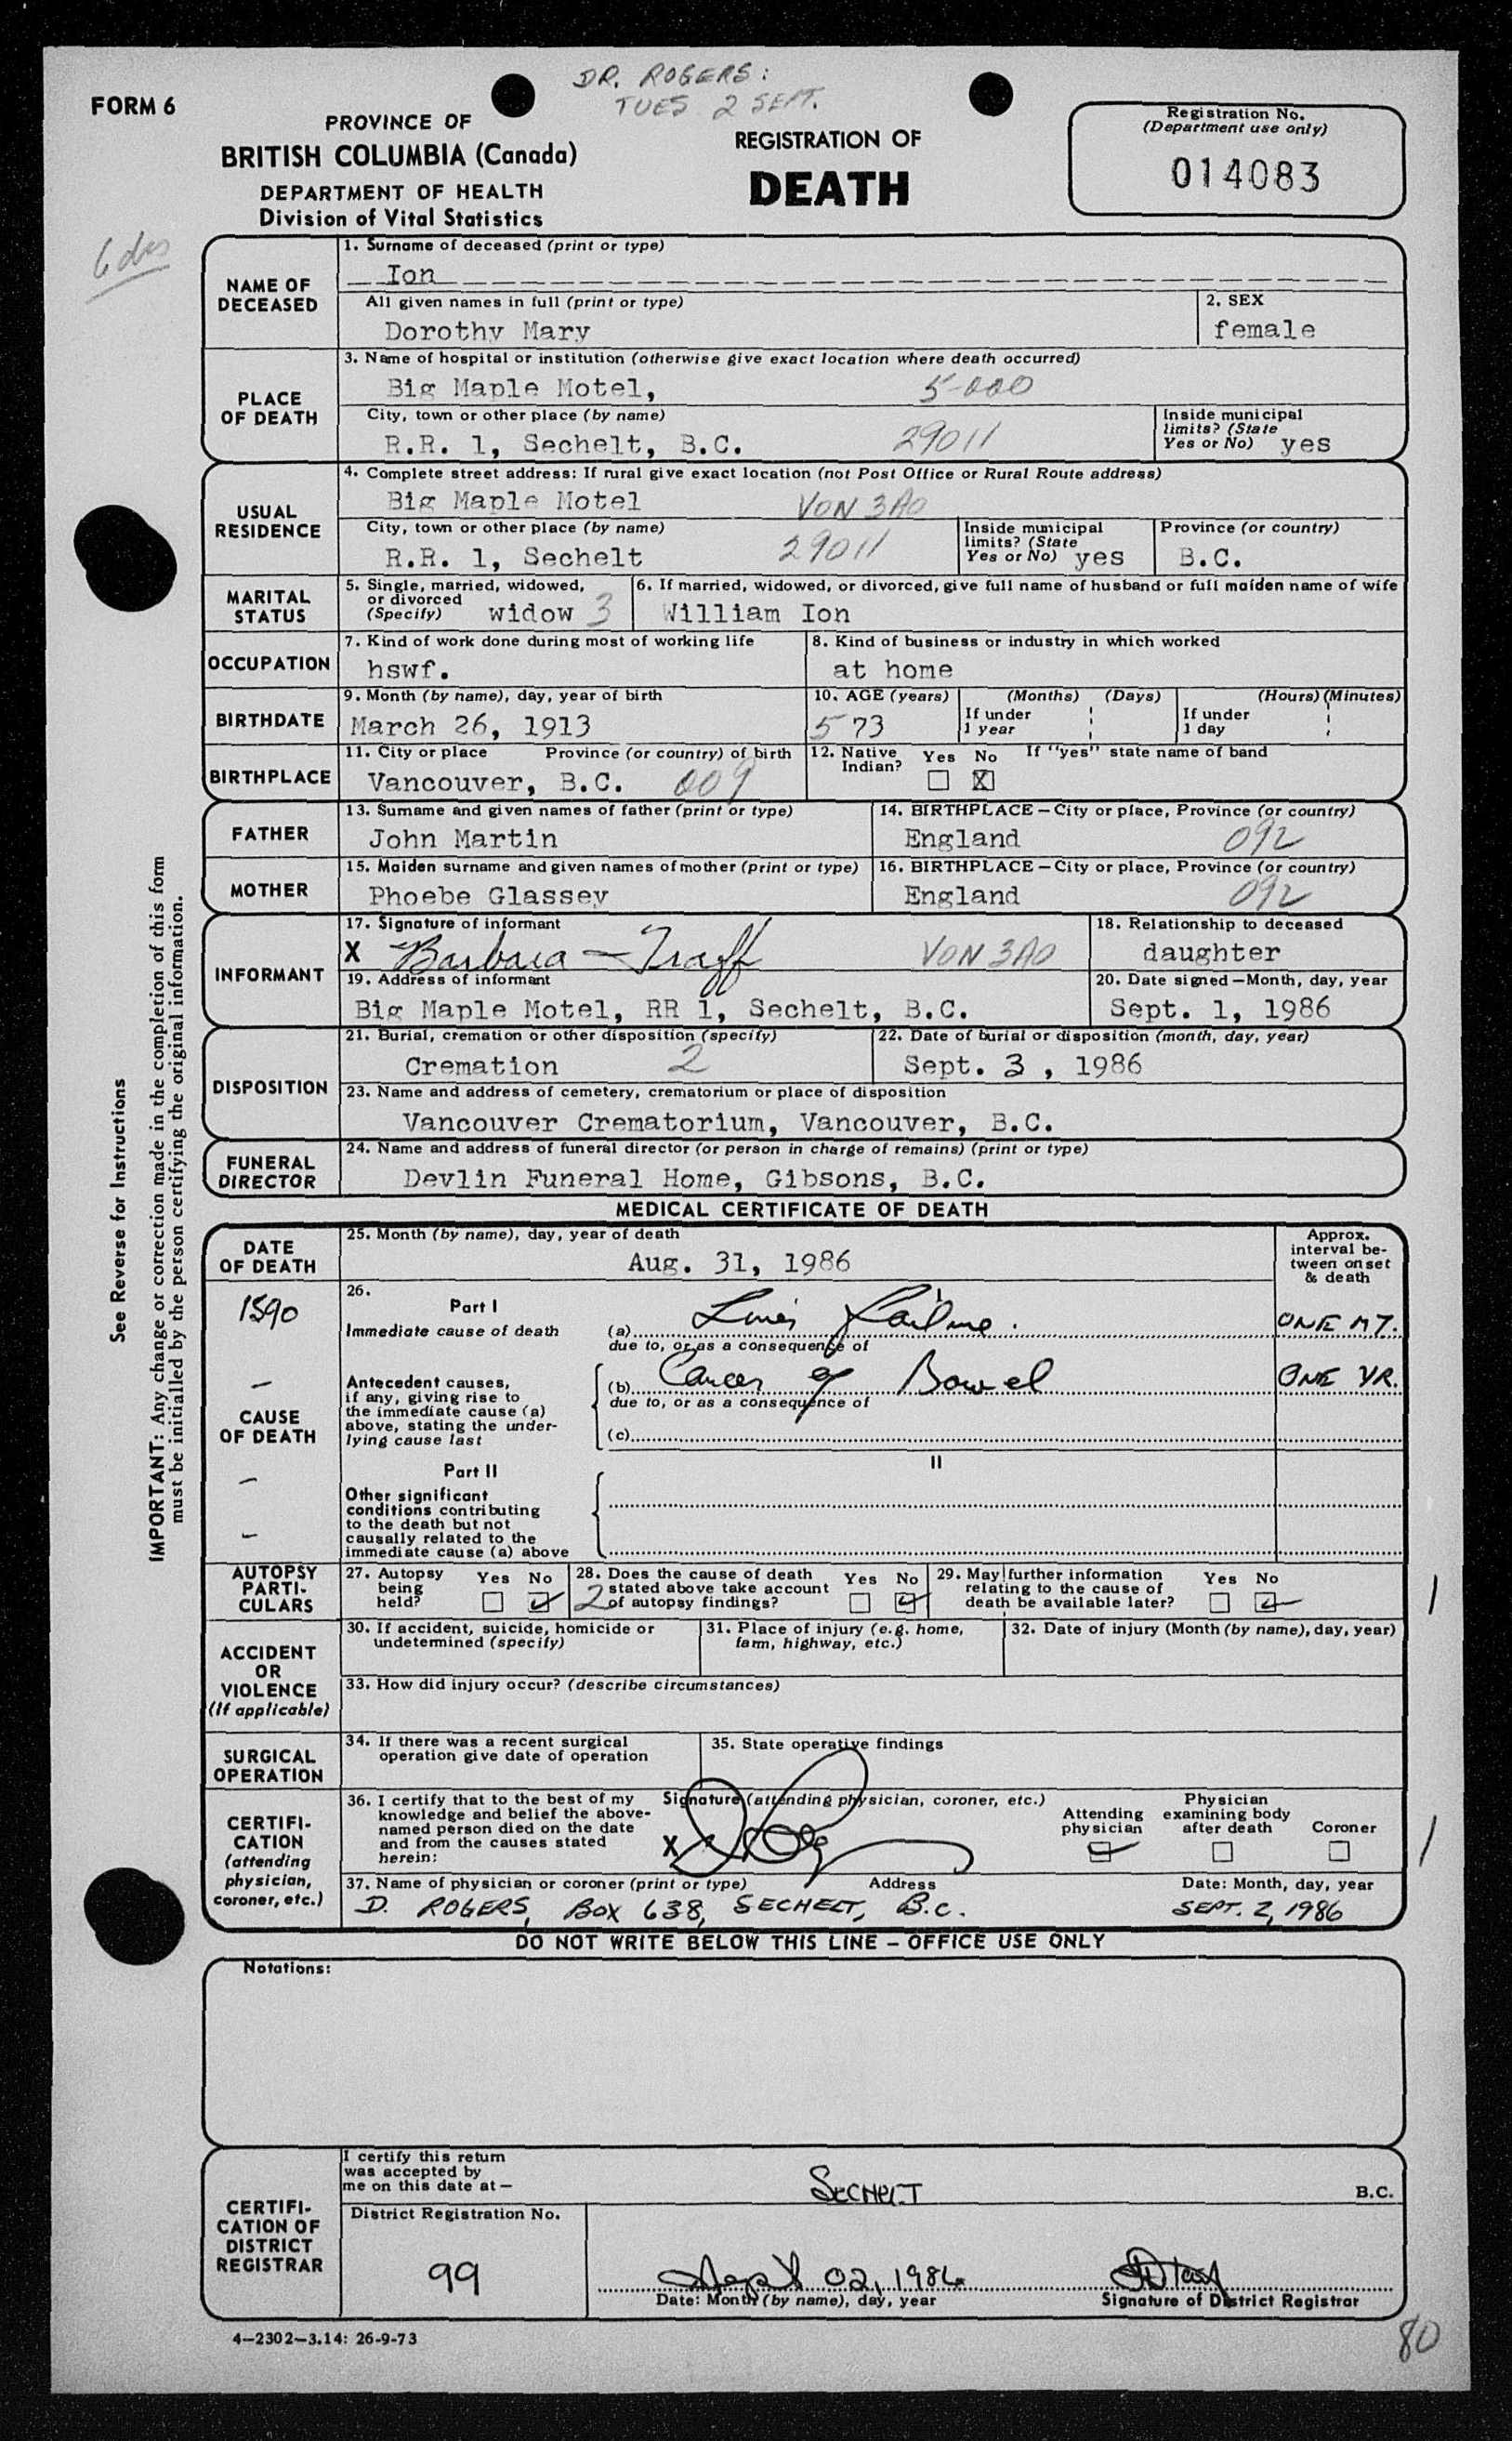 DR. ROGERS:
TUES 2 SEPT.
FORM 6
PROVINCE OF
BRITISH COLUMBIA (Canada)
DEPARTMENT OF HEALTH
Division of Vital Statistics
REGISTRATION OF
DEATH
Registration No.
(Department use only)
014083
NAME OF DECEASED
1. Surname of deceased (print or type)
Ion
All given names in full (print or type)
Dorothy Mary
2. SEX
female
PLACE OF DEATH
3. Name of hospital or institution (otherwise give exact location where death occurred)
Big Maple Motel, 5-000
City, town or other place (by name)
R.R. 1, Sechelt, B.C. 29011
Inside municipal limits? (State Yes or No) yes
USUAL RESIDENCE
4. Complete street address: If rural give exact location (not Post Office or Rural Route address)
Big Maple Motel VON 3A0
City, town or other place (by name)
R.R. 1, Sechelt 29011
Inside municipal limits? (State Yes or No) yes
Province (or country)
B.C.
MARITAL STATUS
5. Single, married, widowed, or divorced (Specify) widow 3
6. If married, widowed, or divorced, give full name of husband or full maiden name of wife
William Ion
OCCUPATION
7. Kind of work done during most of working life
hswf.
8. Kind of business or industry in which worked
at home
BIRTHDATE
9. Month (by name), day, year of birth
March 26, 1913
10. AGE (years) (Months) (Days) (Hours) (Minutes)
5 73
If under 1 year
If under 1 day
BIRTHPLACE
11. City or place Province (or country) of birth
Vancouver, B.C. 009
12. Native Indian? Yes No If "yes" state name of band
X
FATHER
13. Surname and given names of father (print or type)
John Martin
14. BIRTHPLACE – City or place, Province (or country)
England 092
MOTHER
15. Maiden surname and given names of mother (print or type)
Phoebe Glassey
16. BIRTHPLACE – City or place, Province (or country)
England 092
INFORMANT
17. Signature of informant
X Barbara Traff VON 3A0
18. Relationship to deceased
daughter
19. Address of informant
Big Maple Motel, RR 1, Sechelt, B.C.
20. Date signed – Month, day, year
Sept. 1, 1986
DISPOSITION
21. Burial, cremation or other disposition (specify)
Cremation 2
22. Date of burial or disposition (month, day, year)
Sept. 3 , 1986
23. Name and address of cemetery, crematorium or place of disposition
Vancouver Crematorium, Vancouver, B.C.
FUNERAL DIRECTOR
24. Name and address of funeral director (or person in charge of remains) (print or type)
Devlin Funeral Home, Gibsons, B.C.
MEDICAL CERTIFICATE OF DEATH
DATE OF DEATH
25. Month (by name), day, year of death
Aug. 31, 1986
Approx. interval between onset & death
1590
CAUSE OF DEATH
26.
Part I
Immediate cause of death
(a) Liver Failure. ONE MT.
due to, or as a consequence of
Antecedent causes, if any, giving rise to the immediate cause (a) above, stating the underlying cause last
(b) Cancer of Bowel ONE YR.
due to, or as a consequence of
(c)
Part II
II
Other significant conditions contributing to the death but not causally related to the immediate cause (a) above
AUTOPSY PARTICULARS
27. Autopsy being held? Yes No
28. Does the cause of death stated above take account of autopsy findings? Yes No
2
29. May further information relating to the cause of death be available later? Yes No
ACCIDENT OR VIOLENCE (If applicable)
30. If accident, suicide, homicide or undetermined (specify)
31. Place of injury (e.g. home, farm, highway, etc.)
32. Date of injury (Month (by name), day, year)
33. How did injury occur? (describe circumstances)
SURGICAL OPERATION
34. If there was a recent surgical operation give date of operation
35. State operative findings
CERTIFICATION (attending physician, coroner, etc.)
36. I certify that to the best of my knowledge and belief the above-named person died on the date and from the causes stated herein:
Signature (attending physician, coroner, etc.)
X
Attending physician
Physician examining body after death
Coroner
37. Name of physician or coroner (print or type) Address Date: Month, day, year
D. ROGERS, BOX 638, SECHELT, B.C. SEPT. 2, 1986
DO NOT WRITE BELOW THIS LINE – OFFICE USE ONLY
Notations:
CERTIFICATION OF DISTRICT REGISTRAR
I certify this return was accepted by me on this date at – SECHELT B.C.
District Registration No.
99
Sept 02, 1986
Date: Month (by name), day, year
Signature of District Registrar
4–2302–3.14: 26-9-73
80
See Reverse for Instructions
IMPORTANT: Any change or correction made in the completion of this form
must be initialled by the person certifying the original information.